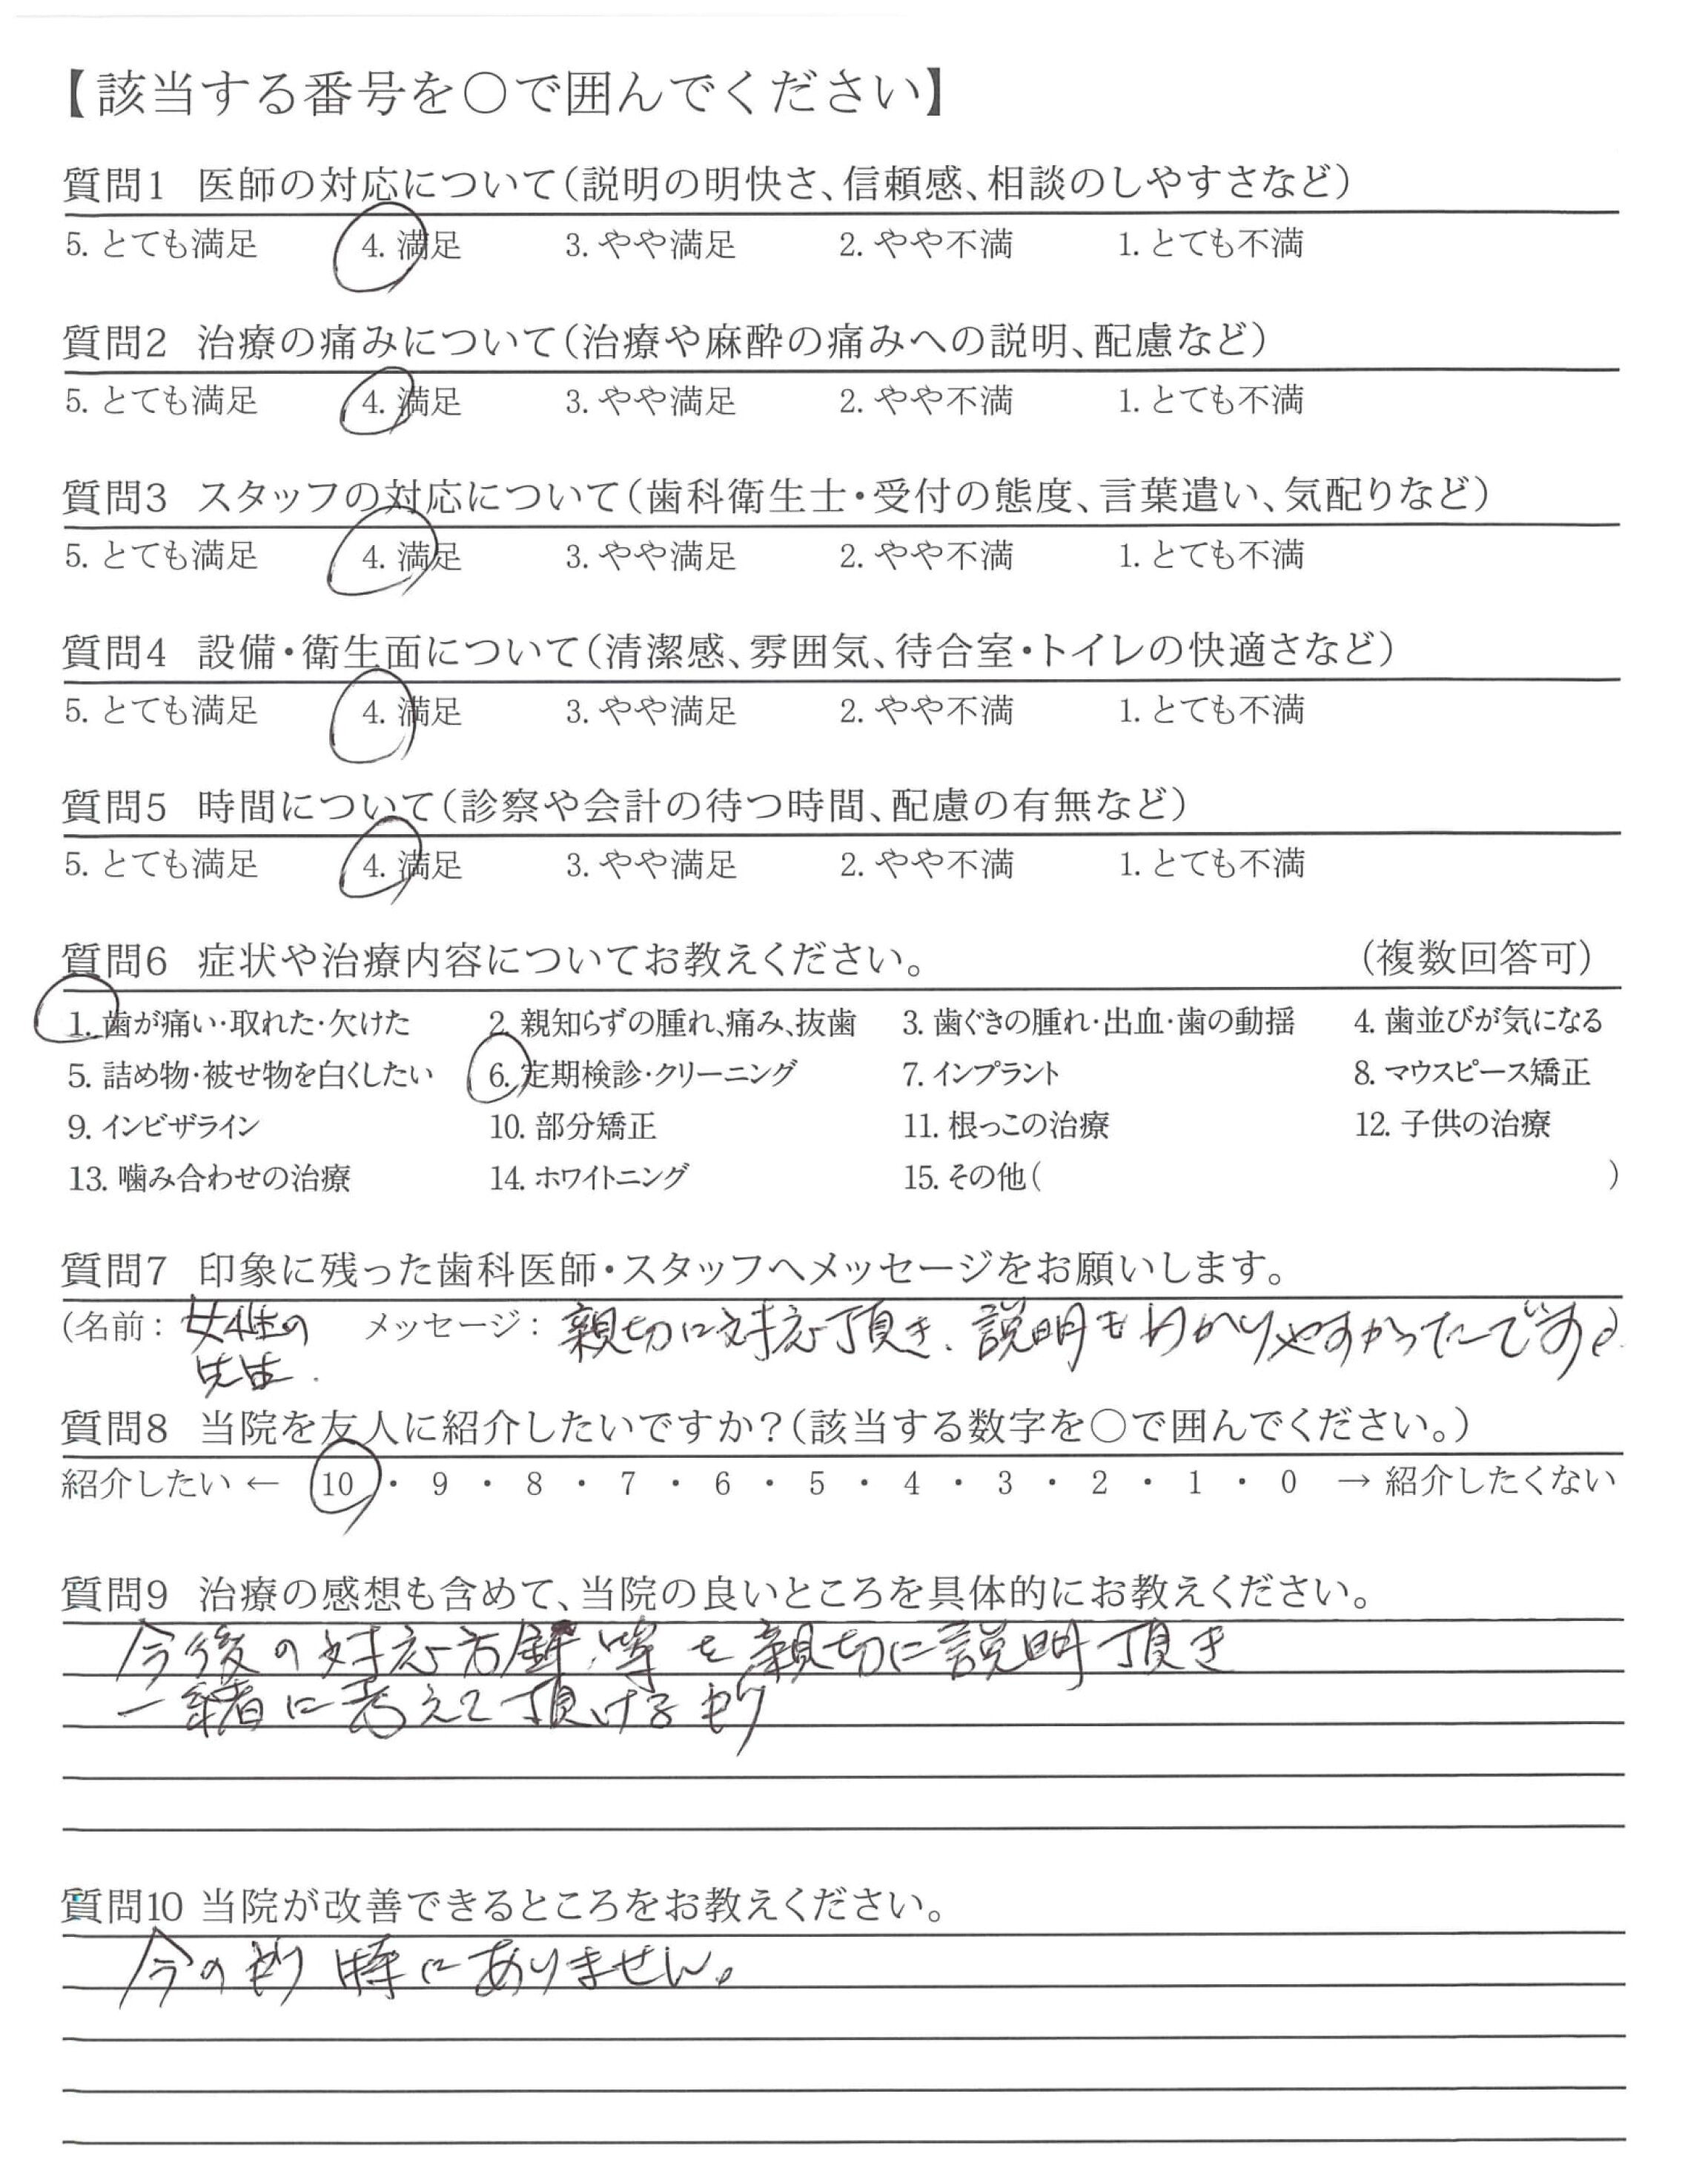 【該当する番号を○で囲んでください】
質問1 医師の対応について(説明の明快さ、信頼感、相談のしやすさなど)
5. とても満足 4. 満足 3. やや満足 2. やや不満 1. とても不満
質問2 治療の痛みについて(治療や麻酔の痛みへの説明、配慮など)
5. とても満足 4. 満足 3. やや満足 2. やや不満 1. とても不満
質問3 スタッフの対応について(歯科衛生士・受付の態度、言葉遣い、気配りなど)
5. とても満足 4. 満足 3. やや満足 2. やや不満 1. とても不満
質問4 設備・衛生面について(清潔感、雰囲気、待合室・トイレの快適さなど)
5. とても満足 4. 満足 3. やや満足 2. やや不満 1. とても不満
質問5 時間について(診察や会計の待つ時間、配慮の有無など)
5. とても満足 4. 満足 3. やや満足 2. やや不満 1. とても不満
質問6 症状や治療内容についてお教えください。 (複数回答可)
1. 歯が痛い・取れた・欠けた 2. 親知らずの腫れ、痛み、抜歯 3. 歯ぐきの腫れ・出血・歯の動揺 4. 歯並びが気になる
5. 詰め物・被せ物を白くしたい 6. 定期検診・クリーニング 7. インプラント 8. マウスピース矯正
9. インビザライン 10. 部分矯正 11. 根っこの治療 12. 子供の治療
13. 噛み合わせの治療 14. ホワイトニング 15. その他( )
質問7 印象に残った歯科医師・スタッフへメッセージをお願いします。
(名前: 女性の メッセージ: 親切に対応頂き、説明もわかりやすかったです。)
先生.
質問8 当院を友人に紹介したいですか?(該当する数字を○で囲んでください。)
紹介したい ← 10 ・ 9 ・ 8 ・ 7 ・ 6 ・ 5 ・ 4 ・ 3 ・ 2 ・ 1 ・ 0 → 紹介したくない
質問9 治療の感想も含めて、当院の良いところを具体的にお教えください。
今後の対応方針等を親切に説明頂き
一緒に考えて頂ける所
質問10 当院が改善できるところをお教えください。
今の所 特にありません。